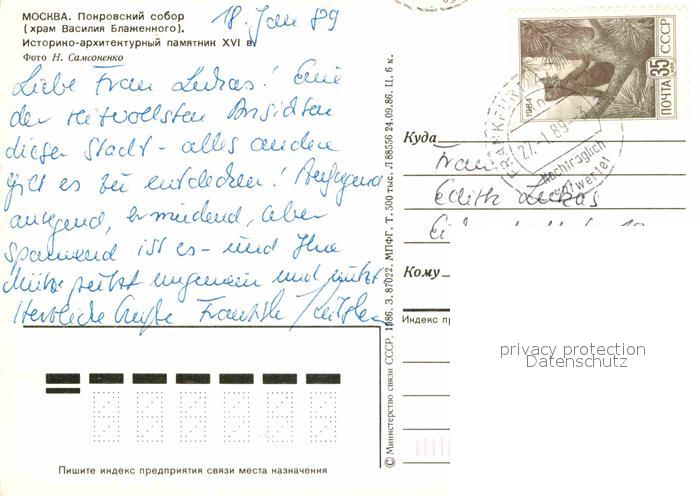 МОСКВА. Покровский собор
(храм Василия Блаженного).
Историко-архитектурный памятник XVI в.
Фото Н. Самсоненко
18. Jan 89
Liebe Frau Lukas! Eine
der reizvollsten Ansichten
dieser Stadt - alles andere
gilt es zu entdecken!
anregend, ermüdend, aber
spannend ist es - und Ihre
Mütze ungemein und
Herzliche Grüße
© Министерство связи СССР, 1986. З. 87022. МПФГ. Т. 500 тыс. Л 88556 24.09.86. Ц. 6 к.
1984
ПОЧТА 35 СССР
FRANKFURT
27.-1.89
Nachträglich
entwertet
Куда
Frau
Edith Lukas
Кому
Индекс пр
privacy protection
Datenschutz
Пишите индекс предприятия связи места назначения